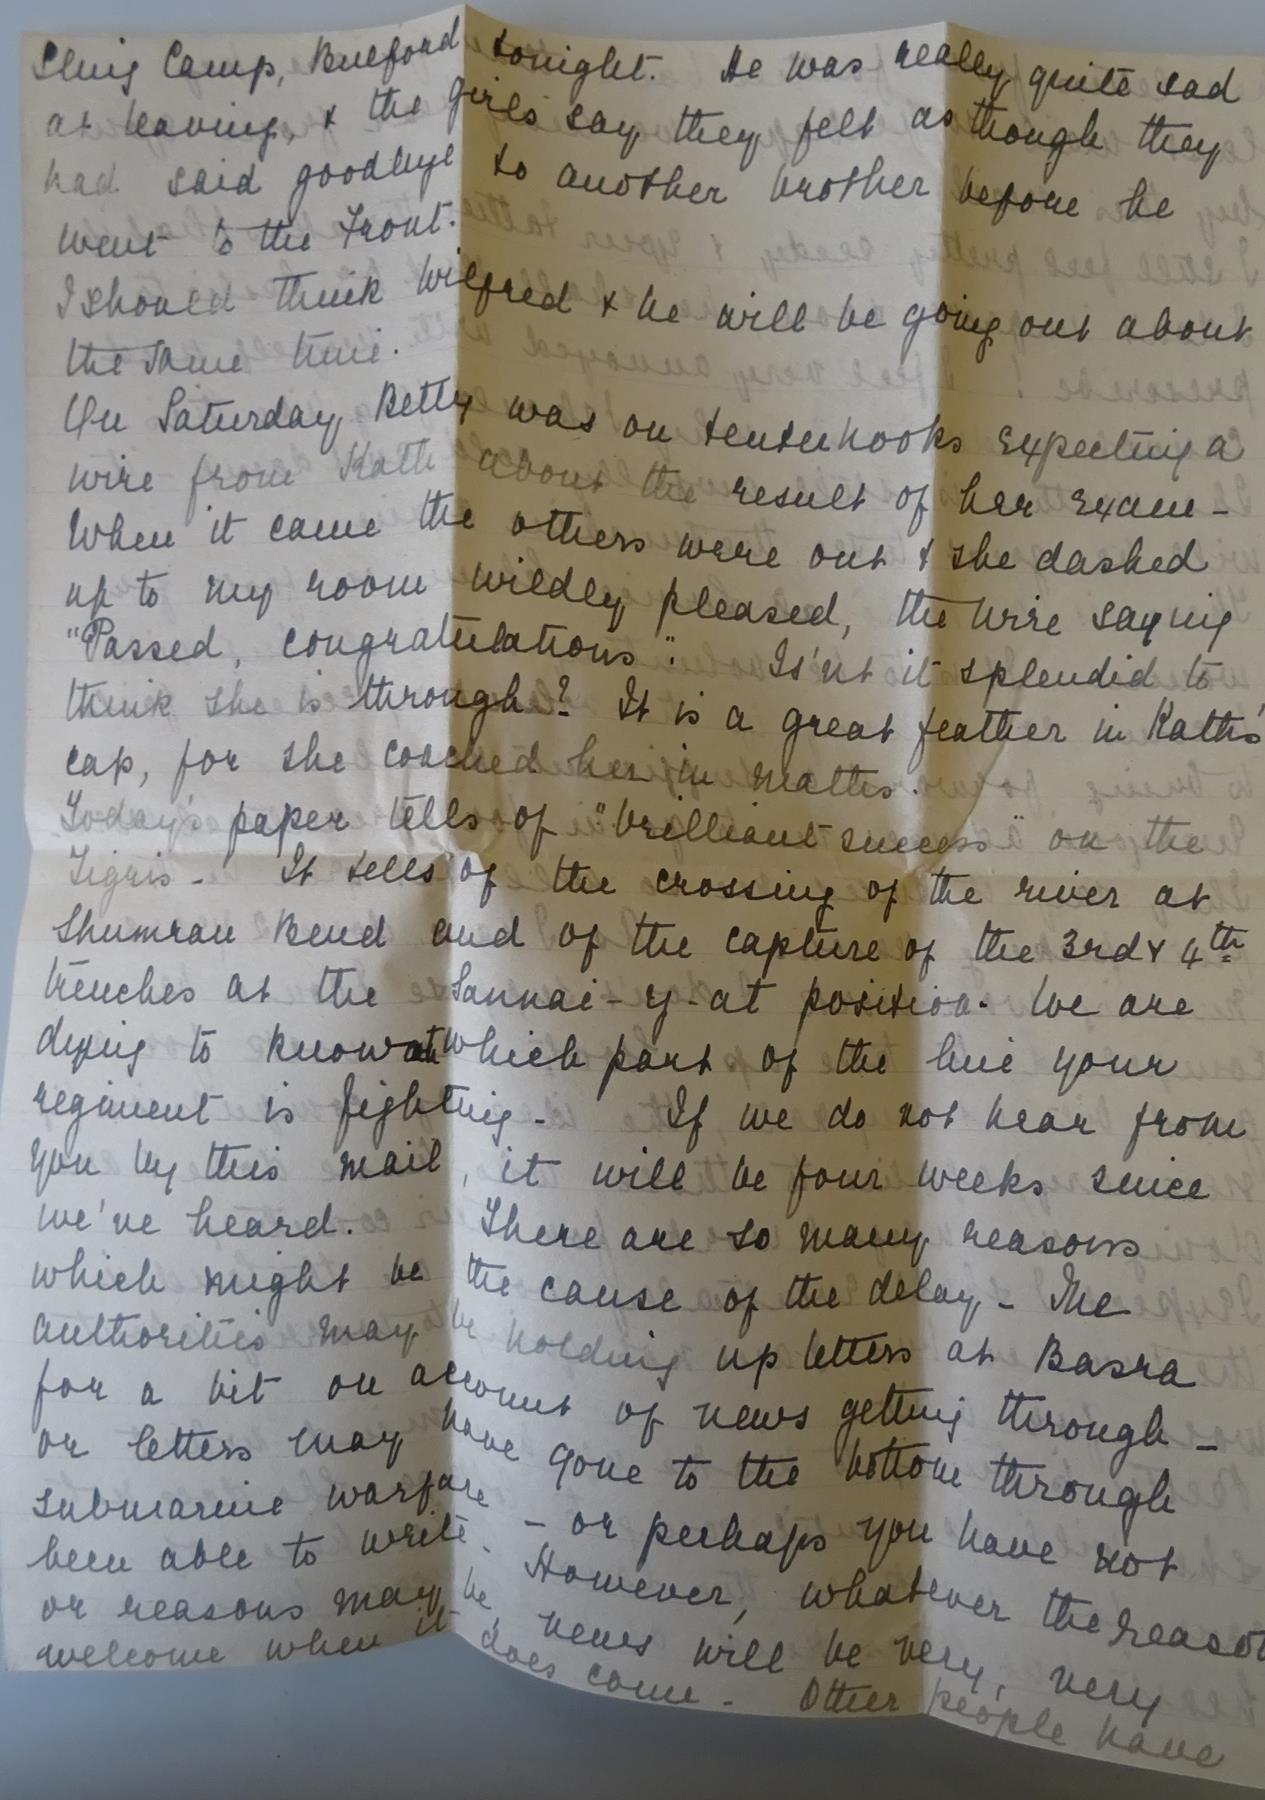 Sling Camp, Bulford tonight. He was really quite sad
at leaving, & the girls say they felt as though they
had said goodbye to another brother before he
went to the Front.
I should think Wilfred & he will be going out about
the same time.
On Saturday, Betty was on tenterhooks expecting a
wire from Kath about the result of her exam -
When it came the others were out & she dashed
up to my room wildly pleased, the wire saying
"Passed, congratulations". Is'nt it splendid to
think she is through? It is a great feather in Kath's
cap, for she coached her in maths.
Today's paper tells of "brilliant success" on the
Tigris - It tells of the crossing of the river at
Shumran Bend and of the capture of the 3rd & 4th
trenches at the Sannai-y-at position. We are
dying to know at which part of the line your
regiment is fighting - If we do not hear from
you by this mail, it will be four weeks since
we've heard. There are so many reasons
which might be the cause of the delay - The
authorities may be holding up letters at Basra
for a bit on account of news getting through -
or letters may have gone to the bottom through
submarine warfare - or perhaps you have not
been able to write. However, whatever the reason
or reasons may be, news will be very, very
welcome when it does come - Other people have